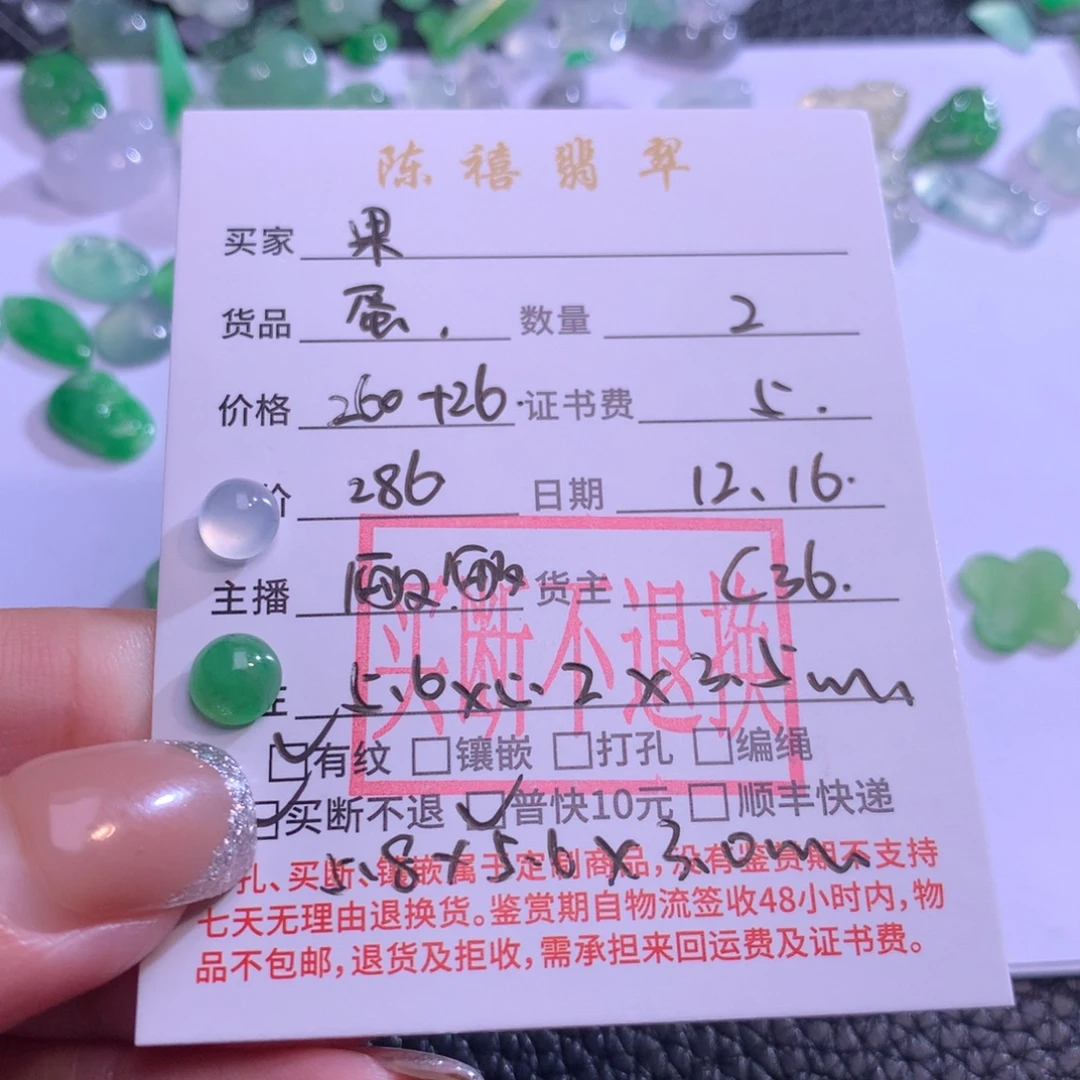 陈禧翡翠
买家 果
货品 蛋. 数量 2
价格 260+26. 证书费 5.
价 286 日期 12、16.
主播 货主 C36.
5.6×5.2×3.5mm
买断不退换
有纹 镶嵌 打孔 编绳
买断不退 普快10元 顺丰快递
5.8×5.6×3.0mm
孔、买断、镶嵌属于定制商品,没有鉴赏期不支持
七天无理由退换货。鉴赏期自物流签收48小时内,物
品不包邮,退货及拒收,需承担来回运费及证书费。